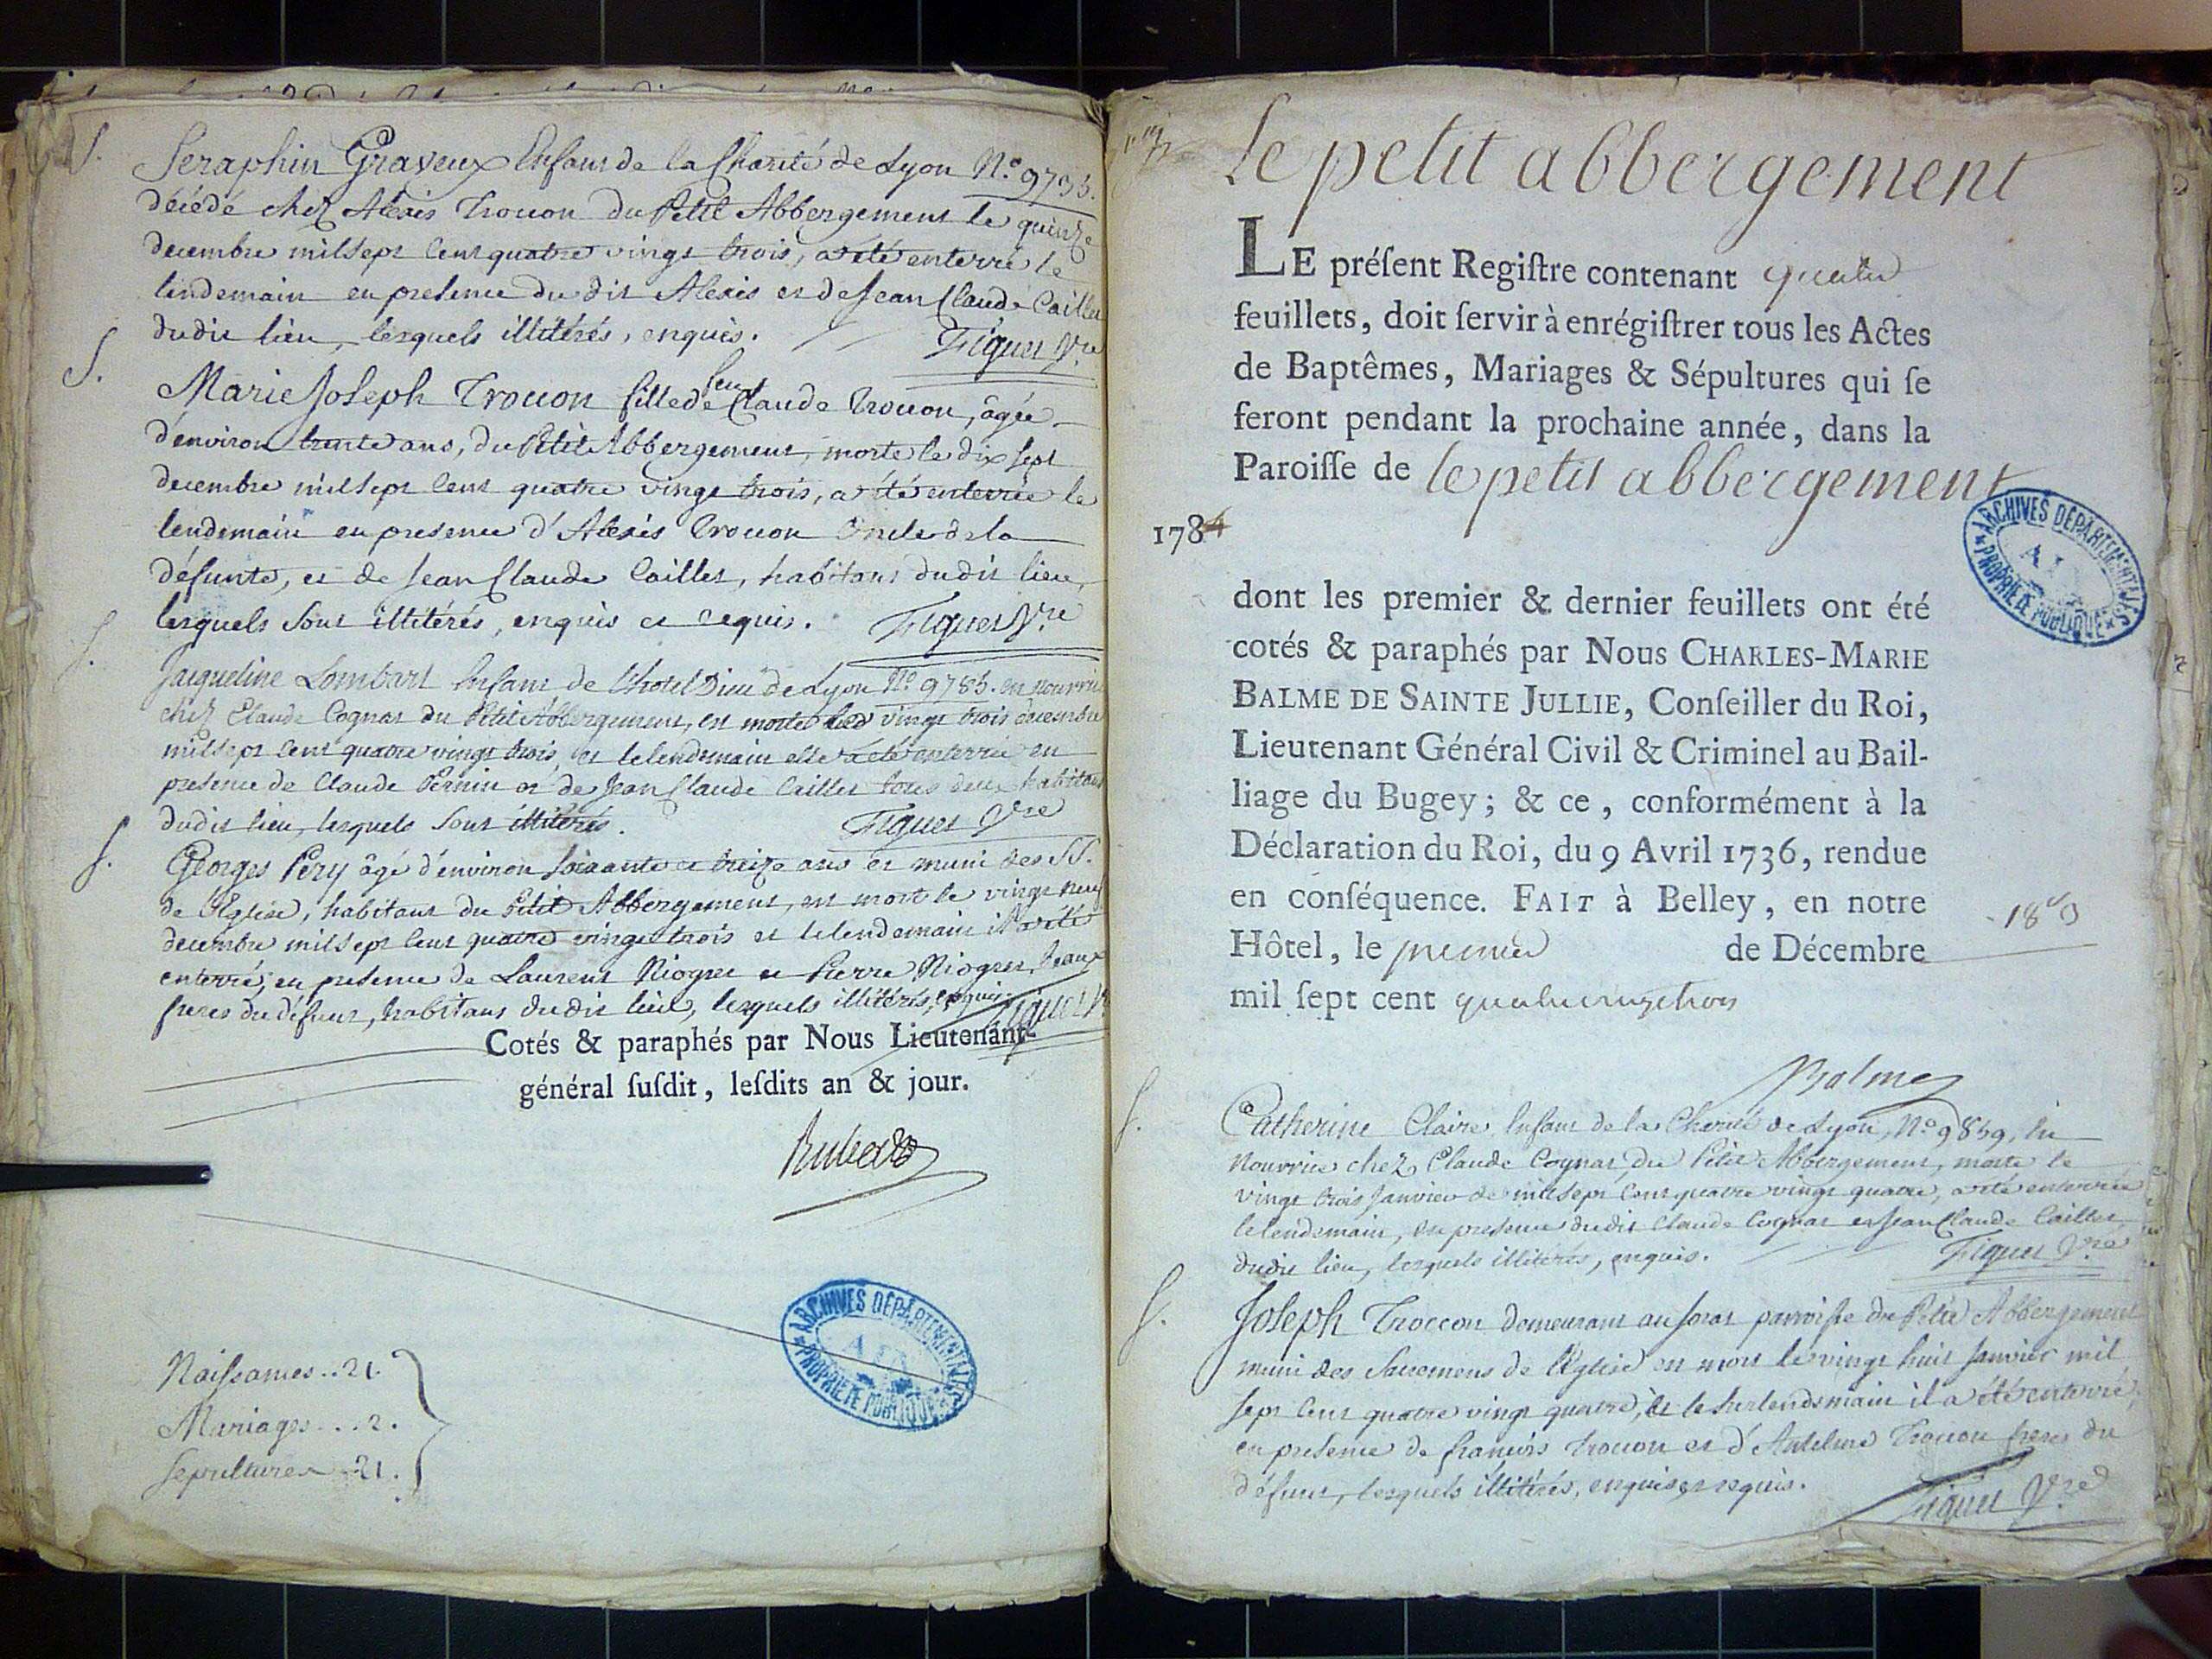 S. Seraphin Graveux Enfant de la Charité de Lyon N.o 9735.
décédé chez Alexis Trocon du Petit Abbergement le quinze
decembre mil sept cent quatre vingt trois, a été enterré le
lendemain en presence du dit Alexis et de Jean Claude Caillet
dudit lieu, lesquels illitérés, enquis. Figuet Vre
S. Marie Joseph Trocon fille de feu Claude Trocon, âgée
d'environ trente ans, du Petit Abbergement, morte le dix sept
decembre mil sept cent quatre vingt trois, a été enterrée le
lendemain en presence d'Alexis Trocon Oncle de la
défunte, et de Jean Claude Caillet, habitans dudit lieu,
lesquels sont illitérés, enquis et requis. Figuet Vre
S. Jacqueline Lombart Enfant de l'hotel Dieu de Lyon N.o 9785. en nourrice
chez Claude Cognat du Petit Abbergement, est morte le vingt trois decembre
mil sept cent quatre vingt trois, et le lendemain elle a été enterrée en
presence de Claude Pernin et de Jean Claude Caillet tous deux habitans
dudit lieu, lesquels sont illitérés. Figuet Vre
S. Georges Pery âgé d'environ soixante et treize ans et muni des SS.
de l'Eglise, habitant du Petit Abbergement, est mort le vingt neuf
decembre mil sept cent quatre vingt trois et le lendemain il a été
enterré, en presence de Laurent Niogret et Pierre Niogret, beaux
freres du défunt, habitans dudit lieu, lesquels illitérés, enquis. Figuet V
Cotés & paraphés par Nous Lieutenant-
général susdit, lesdits an & jour.
Naissances .. 21.
Mariages ... 2.
Sepultures .. 21.
ARCHIVES DÉPARTEMENTALES
AIN
PROPRIÉTÉ PUBLIQUE
Le petit abbergement
LE préſent Regiſtre contenant quatre
feuillets, doit ſervir à enrégiſtrer tous les Actes
de Baptêmes, Mariages & Sépultures qui ſe
feront pendant la prochaine année, dans la
Paroiſſe de le petit abbergement
1784
ARCHIVES DÉPARTEMENTALES
AIN
PROPRIÉTÉ PUBLIQUE
dont les premier & dernier feuillets ont été
cotés & paraphés par Nous CHARLES-MARIE
BALME DE SAINTE JULLIE, Conſeiller du Roi,
Lieutenant Général Civil & Criminel au Bail-
liage du Bugey ; & ce, conformément à la
Déclaration du Roi, du 9 Avril 1736, rendue
en conſéquence. FAIT à Belley, en notre
Hôtel, le premier de Décembre
mil ſept cent quatre vingt trois
Balme
S. Catherine Claire Enfant de la Charité de Lyon, N.o 9859, en
nourrice chez Claude Cognat, du Petit Abbergement, morte le
vingt trois Janvier de mil sept cent quatre vingt quatre, a été enterrée
le lendemain, en presence dudit Claude Cognat et Jean Claude Caillet
dudit lieu, lesquels illitérés, enquis. Figuet Vre
S. Joseph Troccon demeurant au Jorat parroisse du Petit Abbergement
muni des Sacremens de l'Eglise est mort le vingt huit Janvier mil
sept cent quatre vingt quatre, et le surlendemain il a été enterré,
en presence de francois Trocon et d'Antelme Trocon freres du
défunt, lesquels illitérés, enquis et requis. Figuet Vre